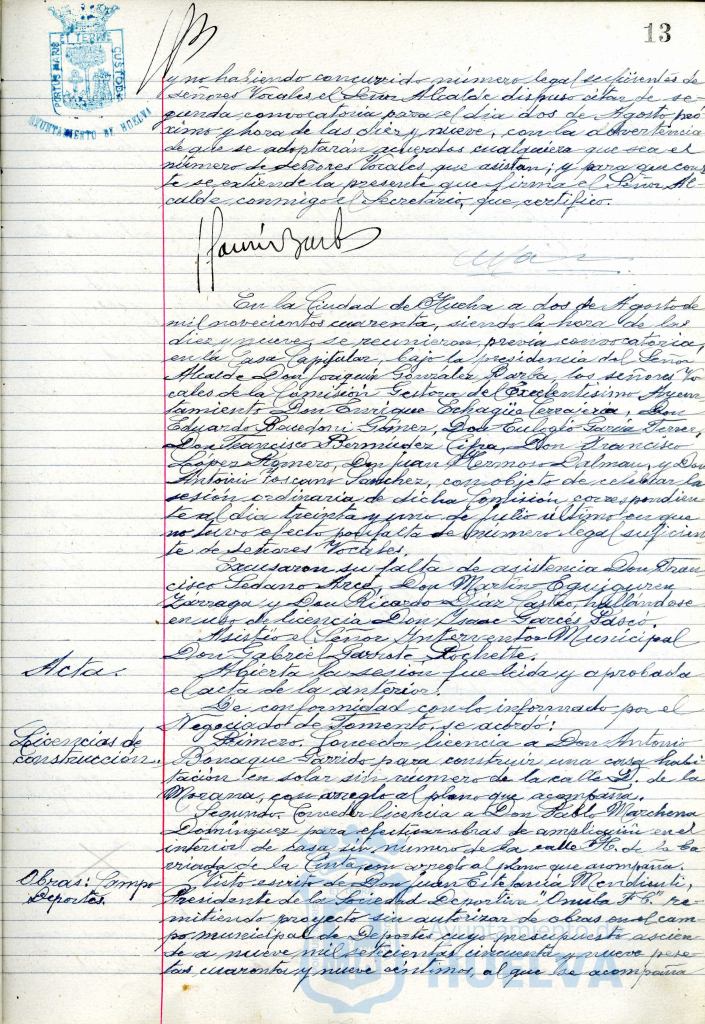 13
PORTUS MARIS ET TERRE CUSTODIA
AYUNTAMIENTO DE HUELVA
y no habiendo concurrido número legal suficientes de
señores Vocales el Señor Alcalde dispuso citar de se-
gunda convocatoria para el día dos de Agosto pró-
ximo y hora de las diez y nueve, con la advertencia
de que se adoptarán acuerdos cualquiera que sea el
número de señores Vocales que asistan; y para que cons-
te se extiende la presente que firma el Señor Al-
calde, conmigo el Secretario, que certifico.
En la Ciudad de Huelva a dos de Agosto de
mil novecientos cuarenta, siendo la hora de las
diez y nueve, se reunieron, previa convocatoria,
en la Casa Capitular, bajo la presidencia del Señor
Alcalde Don Joaquín González Barba, los señores Vo-
cales de la Comisión Gestora del Excelentísimo Ayun-
tamiento Don Enrique Echagüe Cerrajera, Don
Eduardo Racedoni Gómez, Don Eulogio García Ferrer,
Don Francisco Bermúdez Cifra, Don Francisco
López Romero, Don Juan Hermoso Dalmau, y Don
Antonio Toscano Sanchez, con objeto de celebrar la
sesión ordinaria de dicha Comisión correspondien-
te al día treinta y uno de Julio último en que
no tuvo efecto por falta de número legal suficien-
te de Señores Vocales.
Excusaron su falta de asistencia Don Fran-
cisco Sedano Arce, Don Martino Eguiguren
Zárraga y Don Ricardo Díaz Castro, hallándose
en uso de licencia Don Isaac Garcés Gascó.
Asistió el Señor Interventor Municipal
Don Gabriel Garrote Rochette.
Acta. Abierta la sesión fue leída y aprobada
el acta de la anterior.
De conformidad con lo informado por el
Negociado de Fomento, se acordó:
Licencias de Primero. Conceder licencia a Don Antonio
construcción. Bonaque Garrido para construir una casa habi-
tación en solar sin número de la calle D. de la
Morana, con arreglo al plano que acompaña.
Segundo. Conceder licencia a Don Pablo Marchena
Dominguez para efectuar obras de ampliación en el
interior de casa sin número de la calle H. de la ba-
rriada de la Cinta, con arreglo al plano que acompaña.
Obras: Campo Visto escrito de Don Juan Estefanía Mendicuti,
Deportes. Presidente de la Sociedad Deportiva "Onuba F.C." re-
mitiendo proyecto sin autorizar de obras en el cam-
po municipal de Deportes, cuyo presupuesto ascien-
de a nueve mil setecientas cincuenta y nueve pese-
tas cuarenta y nueve céntimos, al que se acompaña
Ayuntamiento de
HUELVA